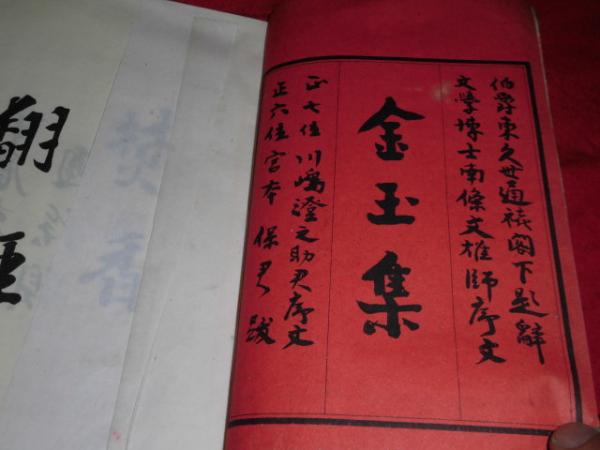 伯爵東久世通禧閣下題辭
文學博士南條文雄師序文
金玉集
正七位川嶋澄之助君序文
正六位宮本保君跋
翻